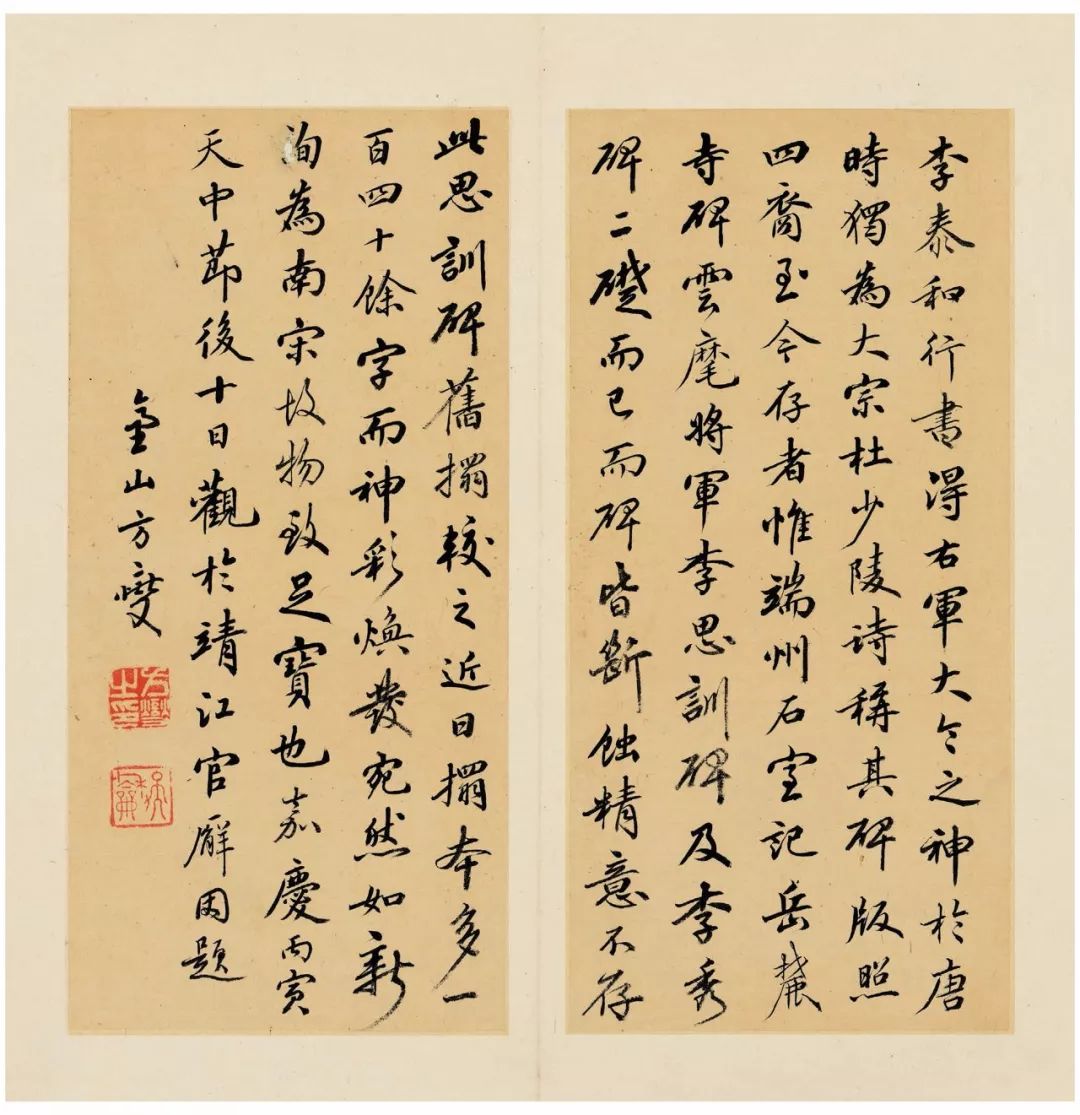 李泰和行書得右軍大令之神於唐
時獨為大宗杜少陵詩稱其碑版照
四裔至今存者惟端州石室記岳麓
寺碑雲麾將軍李思訓碑及李秀
碑二礎而已而碑皆斷蝕精意不存
此思訓碑舊搨較之近日搨本多一
百四十餘字而神彩煥發宛然如新
洵為南宋故物致足寶也嘉慶丙寅
天中節後十日觀於靖江官廨因題
金山方燮
方燮之印